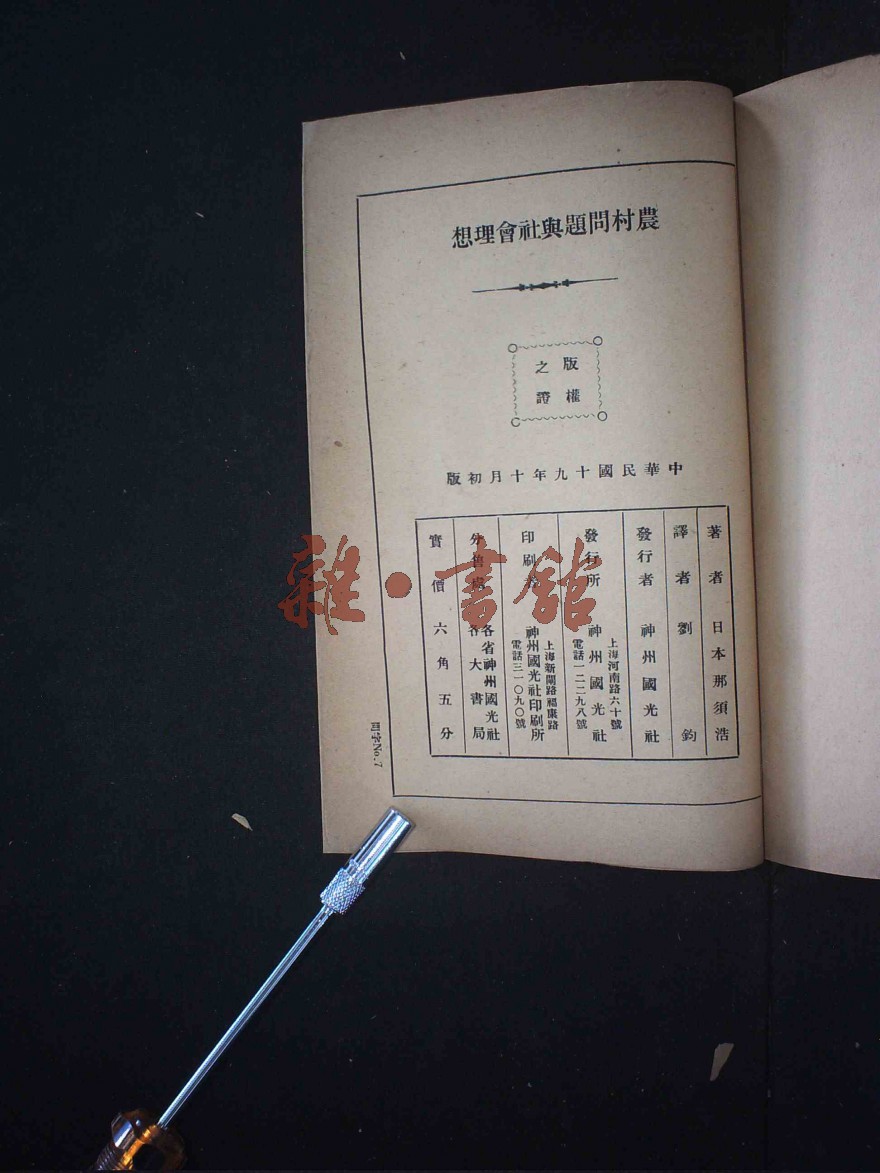 農村問題與社會理想
版權
之證
中華民國十九年十月初版
著者 日本那須浩
譯者 劉鈞
發行者 神州國光社
發行所 神州國光社
上海河南路六十號
電話一二二九八號
印刷者 神州國光社印刷所
上海新閘路福康路
電話三一〇九〇號
分售處 各省神州國光社
各大書局
實價 六角五分
No.7
雜·書館